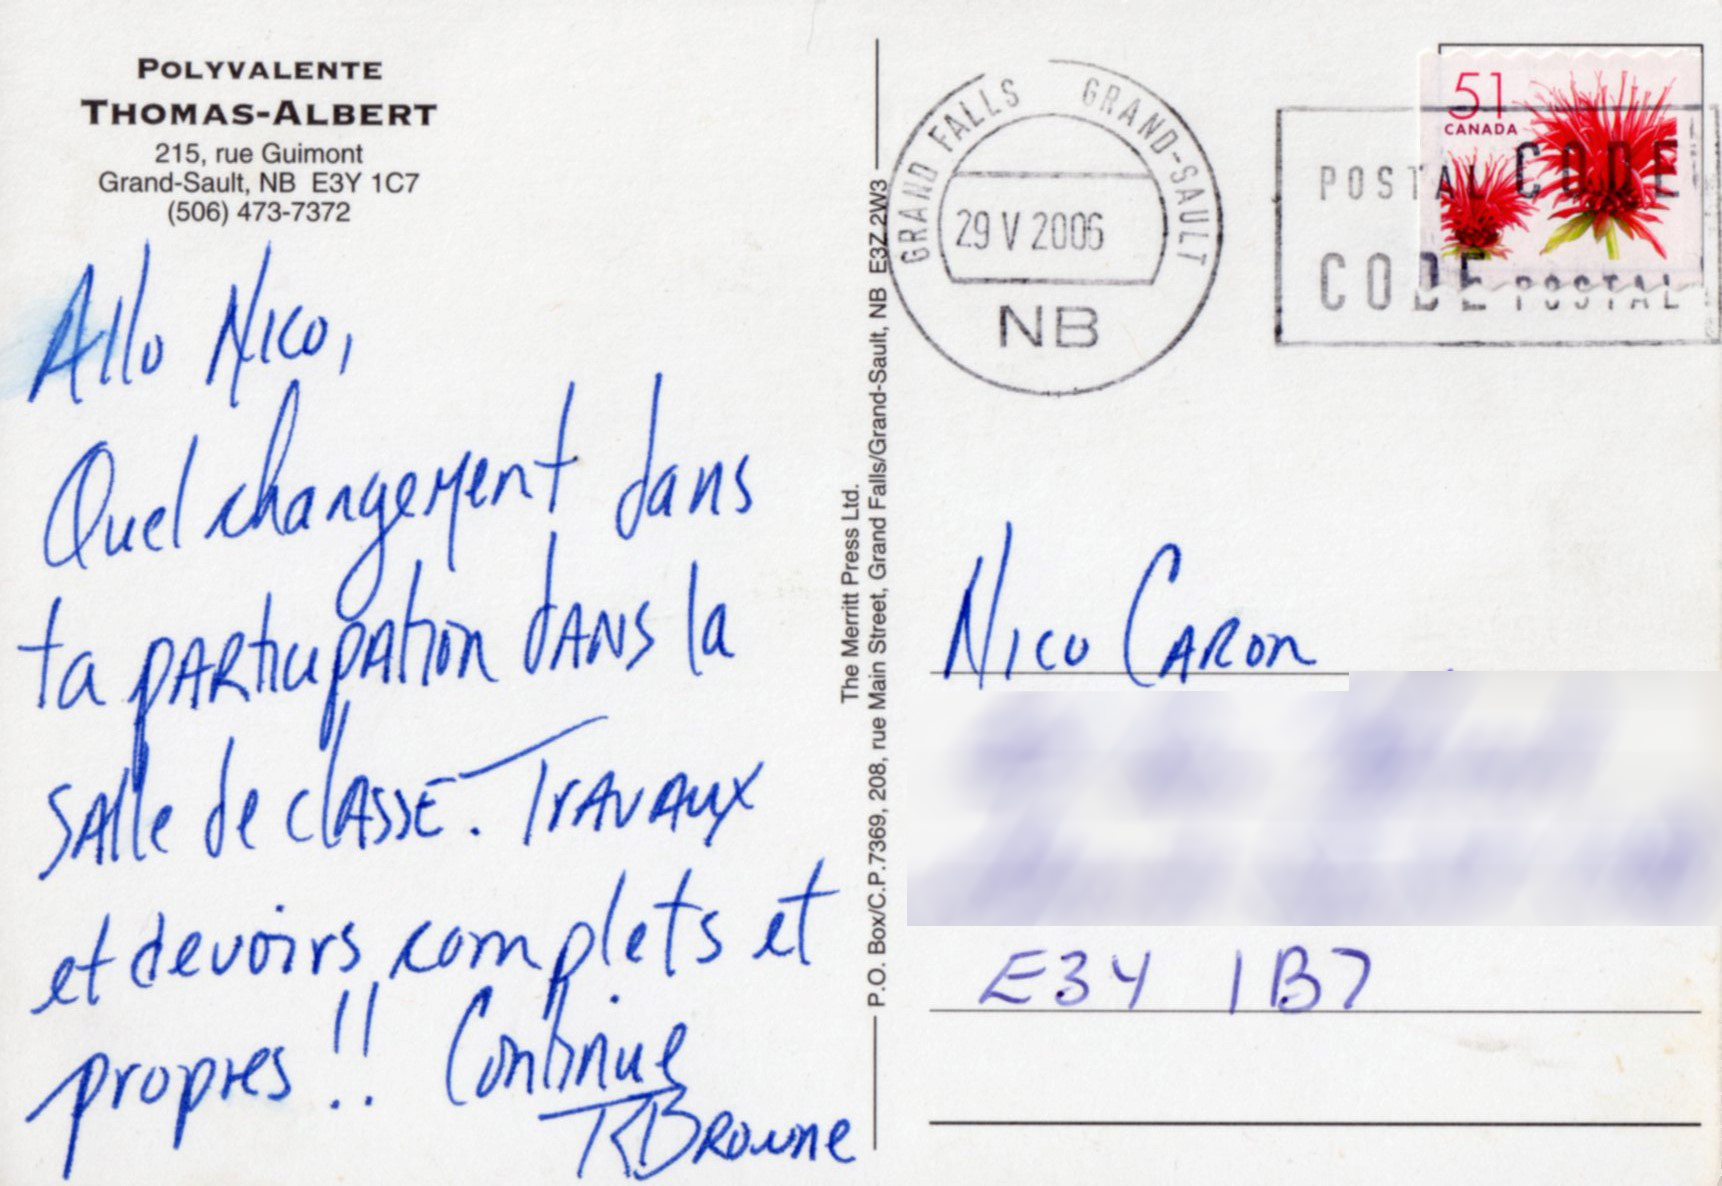 POLYVALENTE
THOMAS-ALBERT
215, rue Guimont
Grand-Sault, NB E3Y 1C7
(506) 473-7372
Allo Nico,
Quel changement dans
ta participation dans la
salle de classe. Travaux
et devoirs complets et
propres !! Continue
R Browne
The Merritt Press Ltd.
P.O. Box/C.P.7369, 208, rue Main Street, Grand Falls/Grand-Sault, NB E3Z 2W3
GRAND FALLS GRAND-SAULT
29 V 2006
NB
51
CANADA
POSTAL CODE
CODE POSTAL
Nico Caron
E3Y 1B7